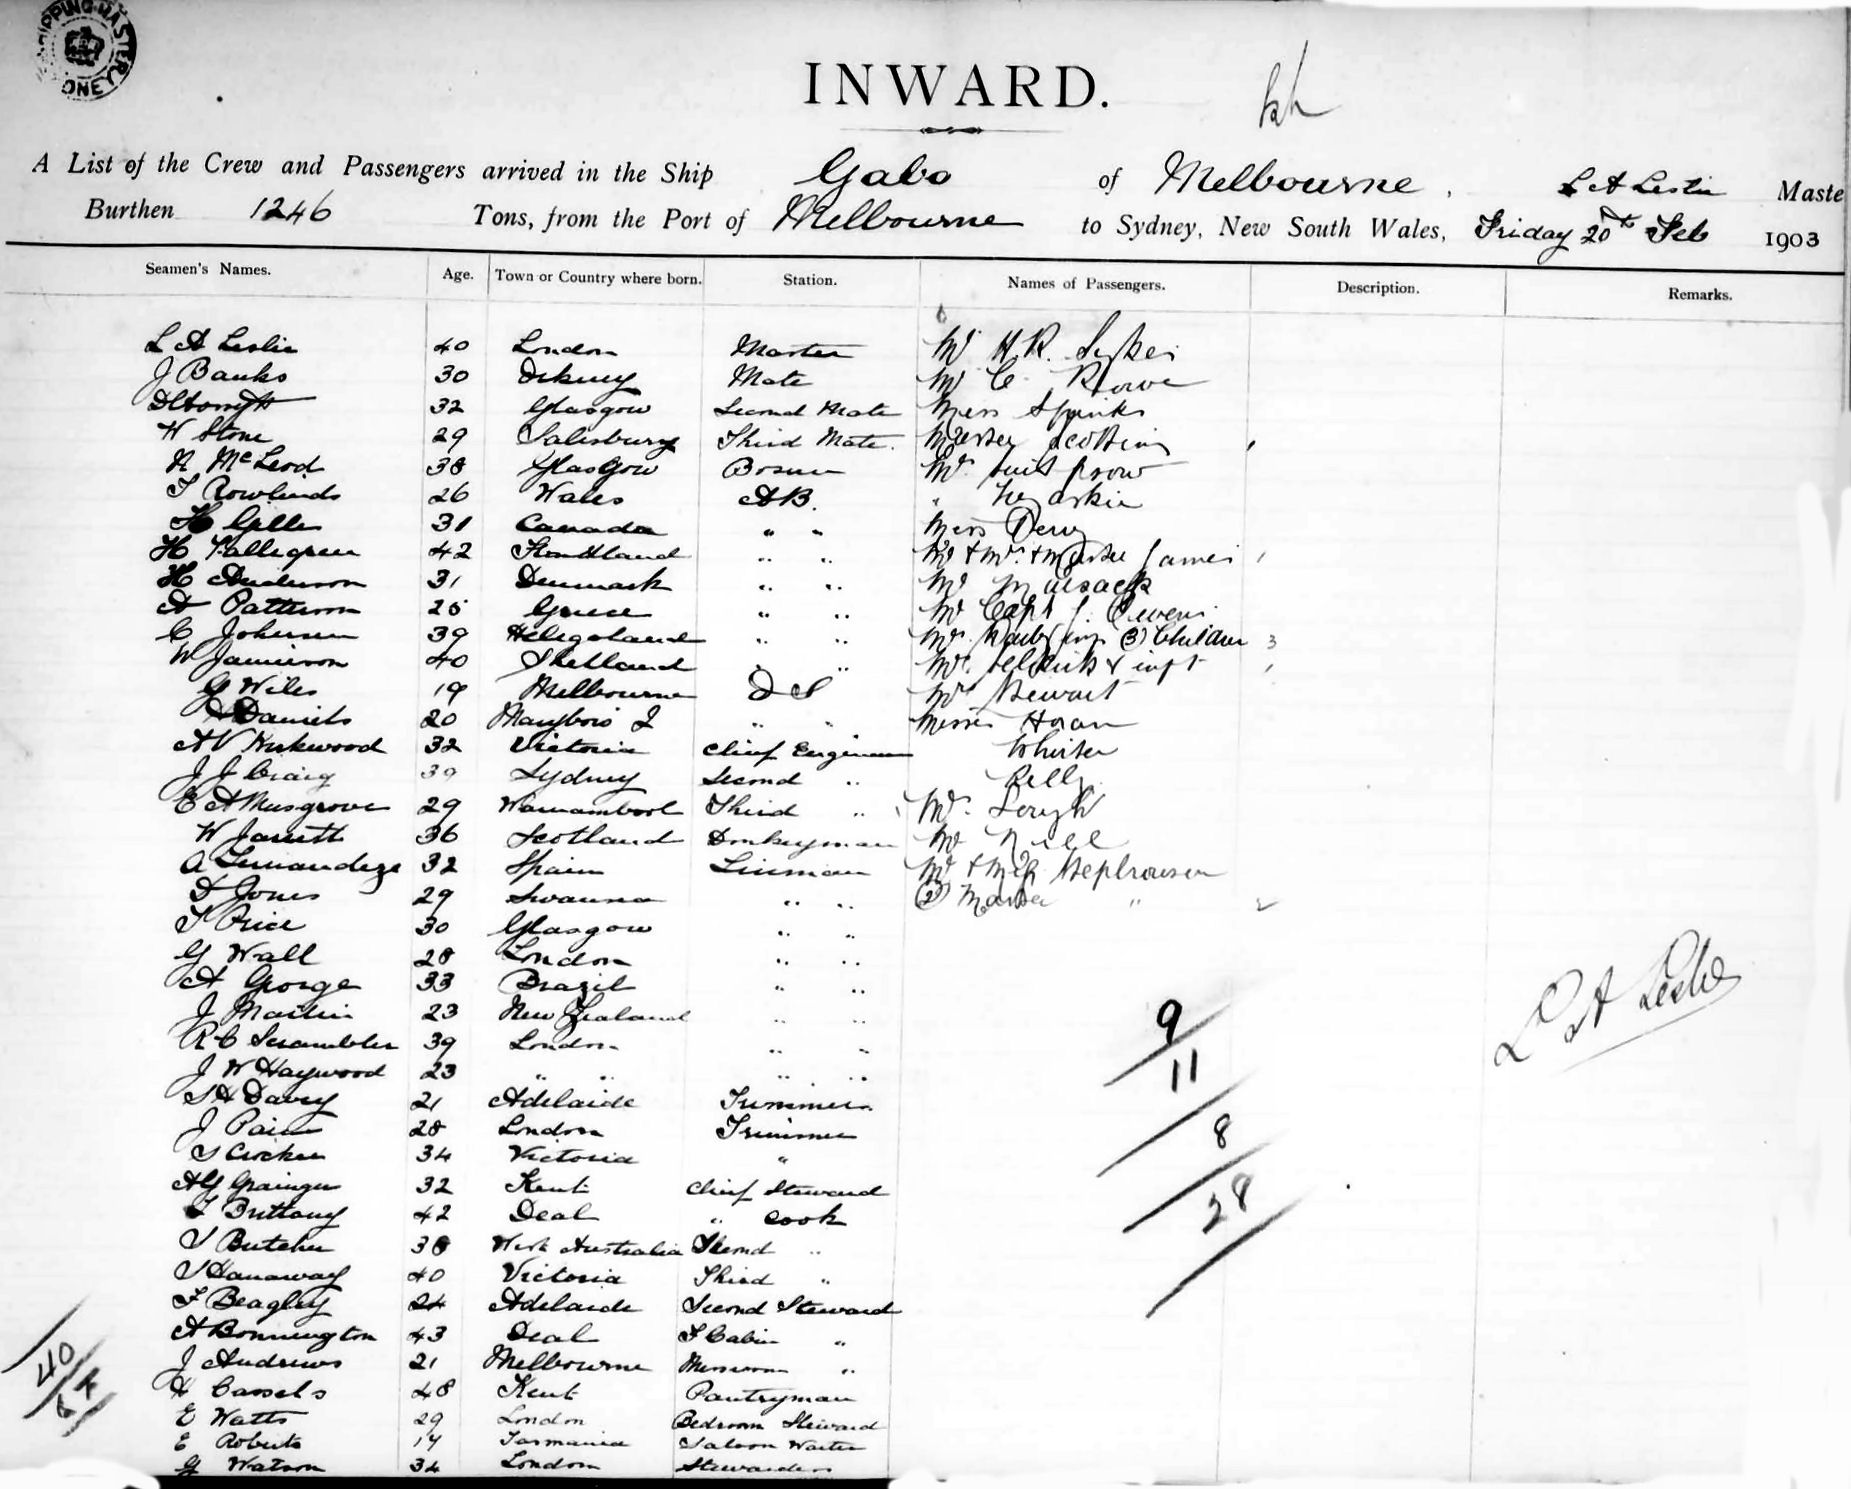 SHIPPING MASTER
INWARD.
A List of the Crew and Passengers arrived in the Ship Gabo of Melbourne, L A Leslie Maste
Burthen 1246 Tons, from the Port of Melbourne to Sydney, New South Wales, Friday 20th Feb 1903
Seamen's Names. Age. Town or Country where born. Station. Names of Passengers. Description. Remarks.
L A Leslie 40 London Master Mr H. R. Sykes
J Banks 30 Mate Mr C. Rowe
32 Glasgow Second Mate Miss Spinks
W Stone 29 Salisbury Third Mate. Master
N McLeod 38 Glasgow Bosun Mr.
T Rowlands 26 Wales AB. "
H 31 Canada " " Miss
H 42 " " Mr & Mrs & Master James
H Anderson 31 Denmark " " Mr
A Patterson 28 Greece " " Mr Capt J. Owens
C Johnson 39 Heligoland " " Mrs. (3) Children 3
W Jamieson 40 Shetland " " Mrs. & inft
G Wiles 19 Melbourne O S Mr Stewart
H Daniels 20 " " Messrs Horan
A V Kirkwood 32 Victoria Chief Engineer
J J Craig 39 Sydney Second " Kelly
E A Musgrove 29 Warrnambool Third "
W Jarrett 36 Scotland Donkeyman Mr Neill
A 32 Spain Fireman Mr & Mrs Stephenson
D Jones 29 Swansea " " (2) Master "
T Price 30 Glasgow " "
G Wall 28 London " "
A George 33 Brazil " "
J Martin 23 New Zealand " "
R C Scrambler 39 London " "
J W Haywood 23 " " " "
S H Davey 21 Adelaide Trimmer
J Pain 28 London Trimmer
T Crocker 34 Victoria "
A G Grainger 32 Kent Chief Steward
T Brittany 42 Deal " Cook
T Butcher 38 West Australia Second "
T Hanaway 40 Victoria Third "
F Beagley 24 Adelaide Second Steward
A Bonnington 43 Deal F Cabin "
J Andrews 21 Melbourne Messroom "
H Cassels 48 Kent Pantryman
E Watts 29 London Bedroom Steward
E Roberts 17 Tasmania Saloon Waiter
G Watson 34 London Stewardess
9
11
8
28
L A Leslie
40